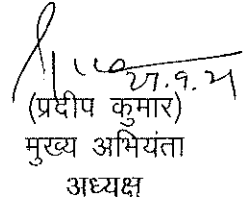 27.9.21
(प्रदीप कुमार)
मुख्य अभियंता
अध्यक्ष